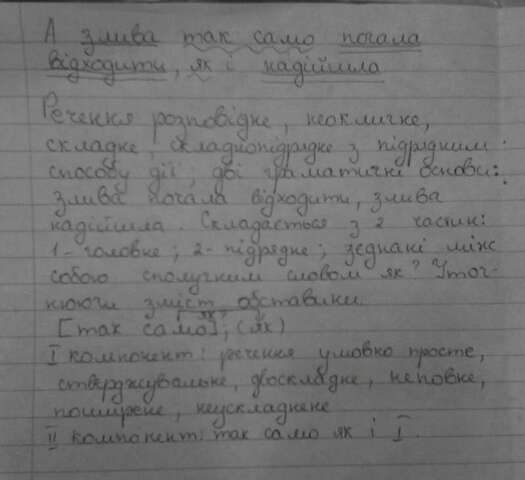 А злива так само почала
відходити, як і надійшла
Речення розповідне, неокличне,
складне, складнопідрядне з підрядним
способу дії, дві граматичні основи:
злива почала відходити, злива
надійшла. Складається з 2 частин:
1-головне; 2-підрядне; зєднані між
собою сполучним словом як? Уточ-
нююч зміст обставини.
як?
[так само], (як)
I компонент: речення умовно просте,
стверджувальне, двоскладне, неповне,
поширене, неускладнене
II компонент: так само як і I.